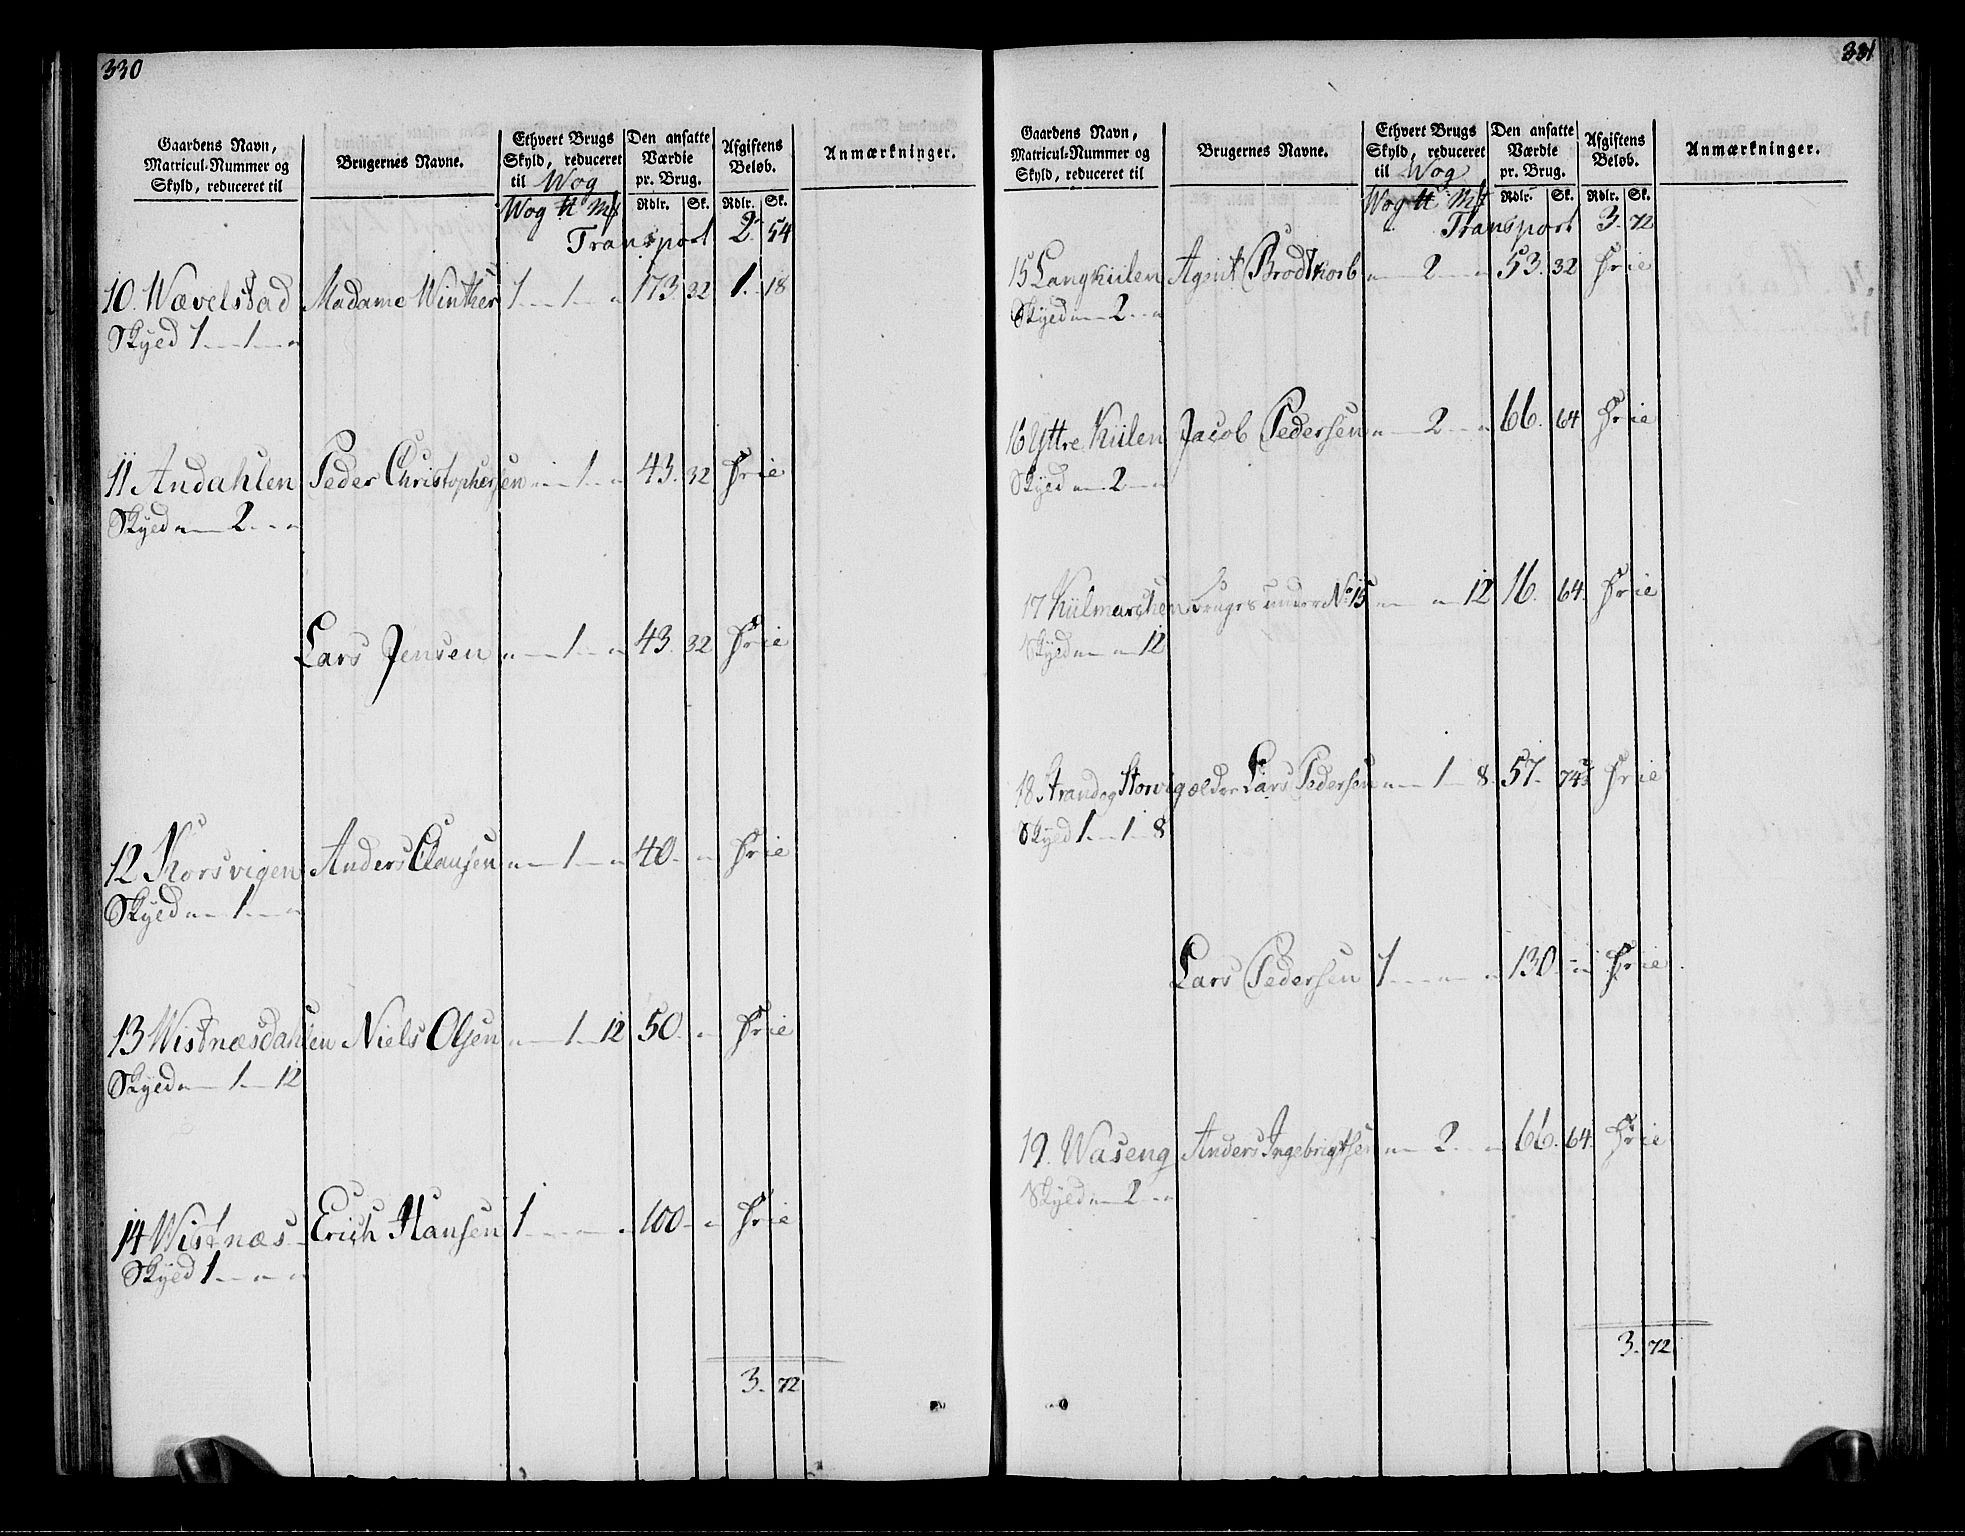 330
Gaardens Navn, Matricul-Nummer og Skyld, reduceret til
Brugernes Navne.
Ethvert Brugs Skyld, reduceret til Wog
Den ansatte Værdie pr. Brug.
Afgiftens Beløb.
Anmærkninger.
Wog ℔ Mk Rdlr. Sk. Rdlr. Sk.
Transport 2 54
10. Wævelstad Madame Winther 1 1 „ 173 32 1 18
Skyld 1 1 „
11 Andahlen Peder Christophersen „ 1 „ 43 32 Frie
Skyld „ 2 „
Lars Jensen „ 1 „ 43 32 Frie
12 Korsvigen Anders Clausen „ 1 „ 40 „ Frie
Skyld „ 1 „
13 Wistnæsdahlen Niels Olsen „ 1 12 50 „ Frie
Skyld „ 1 12
14 Wistnæs Erich Hansen 1 „ „ 100 „ Frie
Skyld 1 „ „
3 72
331
Gaardens Navn, Matricul-Nummer og Skyld, reduceret til
Brugernes Navne.
Ethvert Brugs Skyld, reduceret til Wog
Den ansatte Værdie pr. Brug.
Afgiftens Beløb.
Anmærkninger.
Wog ℔ Mk Rdlr. Sk. Rdlr. Sk.
Transport 3 72
15 Langkiilen Agent Brodtkorb „ 2 „ 53 32 Frie
Skyld „ 2 „
16 Yttre Kiilen Jacob Pedersen „ 2 „ 66 64 Frie
Skyld „ 2 „
17 Kiilmarschen bruges under No 15 „ „ 12 16 64 Frie
Skyld „ „ 12
18 Strand og Storvig ælder Lars Pedersen „ 1 8 57 Frie
Skyld 1 1 8
Lars Pedersen 1 „ „ 130 „ Frie
19. Waseng Anders Ingebrigtsen „ 2 „ 66 64 Frie
Skyld „ 2 „
3 72